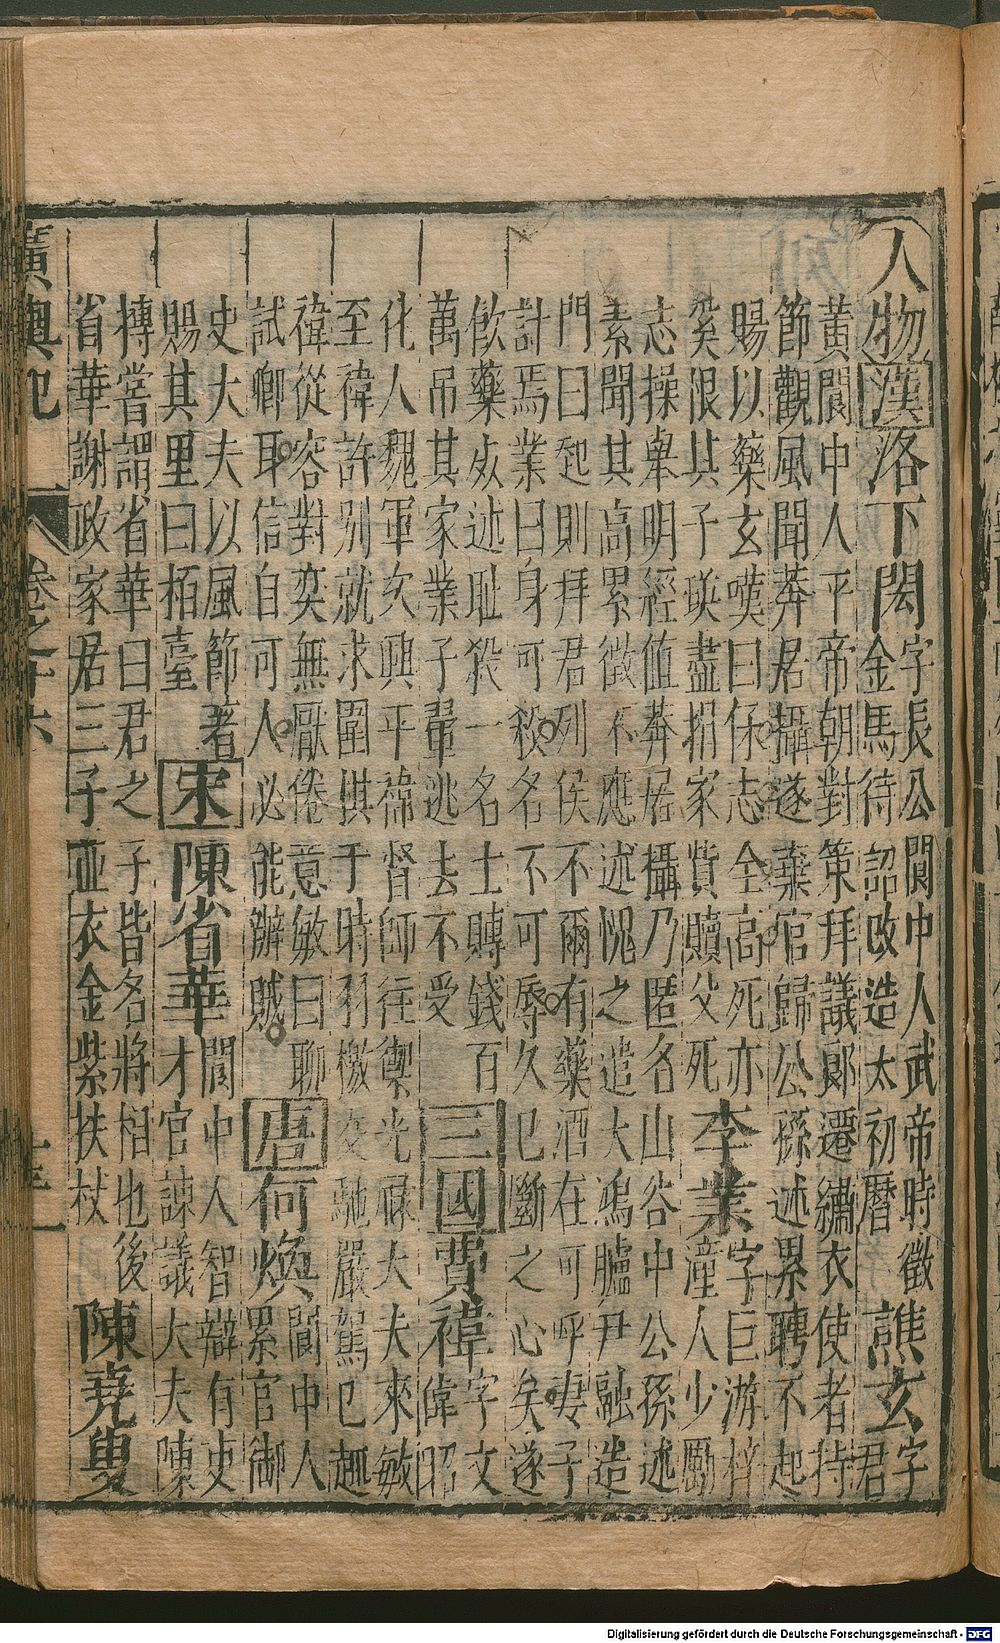 人物漢洛下閎字長公閬中人武帝時徵
金馬待詔改造太初曆譙玄字君
黃閬中人平帝朝對策拜議郎遷繡衣使者持
節觀風聞莽居攝遂棄官歸公孫述累聘不起
賜以藥玄嘆曰保志全高死亦
奚限其子瑛盡捐家貲贖父死李業字巨游梓
潼人少勵
志操舉明經值莽居攝乃匿名山谷中公孫述
素聞其高累徵不應述愧之遣大鴻臚尹融造
門曰起則拜君列侯不爾有藥酒在可呼妻子
計焉業曰身可殺名不可辱久已斷之心矣遂
飲藥死述恥殺一名士賻錢百
萬吊其家業子翬逃去不受三國費禕字文
偉昭
化人魏軍次興平禕督師往禦光祿大夫來敏
至禕許別就求圍棋于時羽檄交馳嚴駕已趣
禕從容對奕無厭倦意敏曰聊
試卿耳信自可人必能辦賊唐何煥閬中人
累官御
史大夫以風節著
賜其里曰栢臺宋陳省華閬中人智辯有吏
才官諫議大夫陳
摶嘗謂省華曰君之子皆名將相也後
省華謝政家居三子並衣金紫扶杖陳堯叟
廣輿記 卷之十六
Digitalisierung gefördert durch die Deutsche Forschungsgemeinschaft - DFG